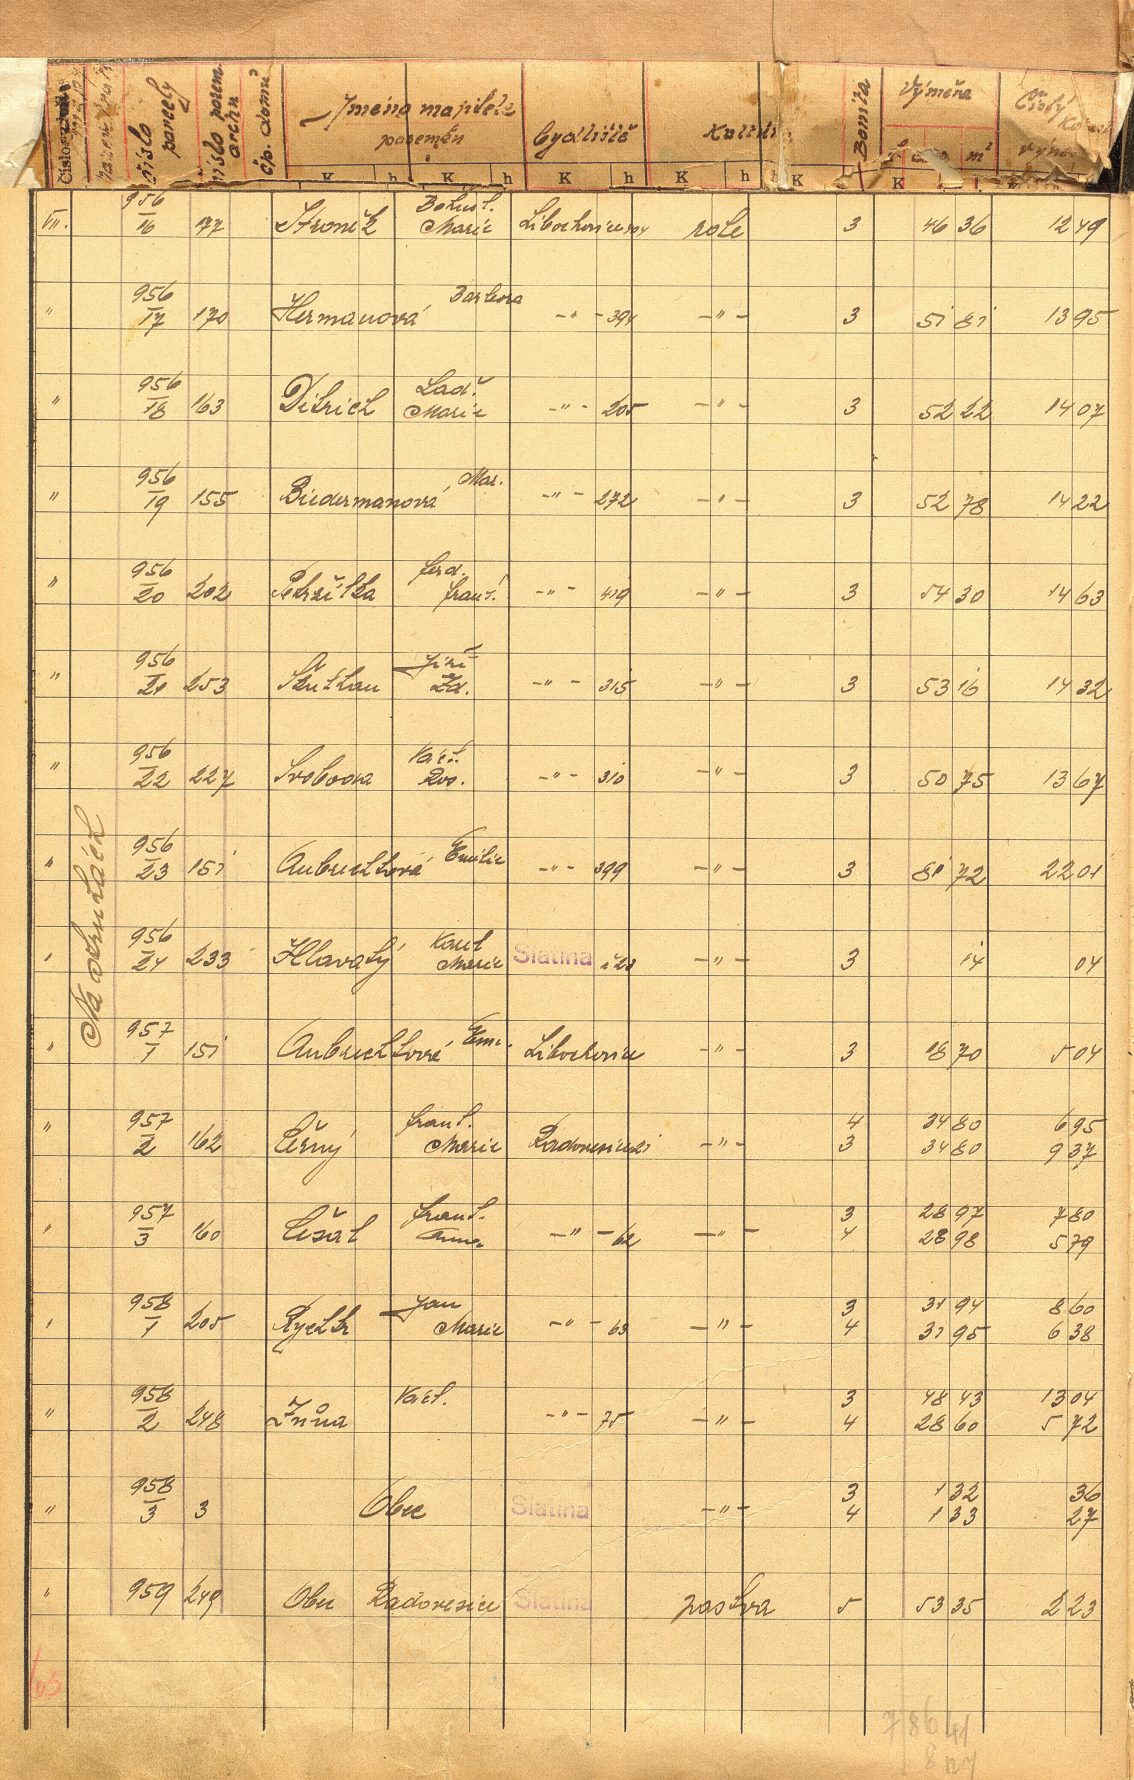 Číslo mapy
Název trati
číslo parcely
číslo pozem. archu
čp. domu
Jméno majitele pozemku
bydliště
Kultura
Bonita
Výměra
ha a m²
Čistý Kat. výnos
K h K h K h K h K
VII. 956/16 77 Stroněk Bohusl. Marie Libochovice role 3 46 36 12 49
" 956/17 170 Heřmanová Barbora -"- 394 -"- 3 51 81 13 95
" 956/18 163 Ditrich Lad. Marie -"- 205 -"- 3 52 22 14 07
" 956/19 155 Biedermanová Mar. -"- 272 -"- 3 52 78 14 22
" 956/20 202 Petržilka Ferd. Frant. -"- 419 -"- 3 54 30 14 63
" 956/21 253 Jiří Zd. -"- 315 -"- 3 53 16 14 32
" 956/22 227 Svoboda Václ. Ros. -"- 310 -"- 3 50 75 13 67
" 956/23 151 Aubrechtová Emilie -"- 399 -"- 3 81 72 22 01
" 956/24 233 Hlavatý Karel Marie Slatina -"- 3 14 04
" 957/1 151 Aubrechtová Emi. Libochovice -"- 3 18 70 5 04
" 957/2 162 Černý Frant. Marie Radovesice -"- 4 34 80 6 95
3 34 80 9 37
" 957/3 160 Češal Frant. Anna -"- 62 -"- 3 28 97 7 80
4 28 98 5 79
" 958/1 205 Rychtr Jan Marie -"- 63 -"- 3 31 94 8 60
4 31 95 6 38
" 958/2 248 Zrůna Václ. -"- 75 -"- 3 48 43 13 04
4 28 60 5 72
" 958/3 3 Obec Slatina -"- 3 1 32 36
4 1 33 27
" 959 249 Obec Radovesice Slatina pastva 5 53 35 2 23
7 86 41